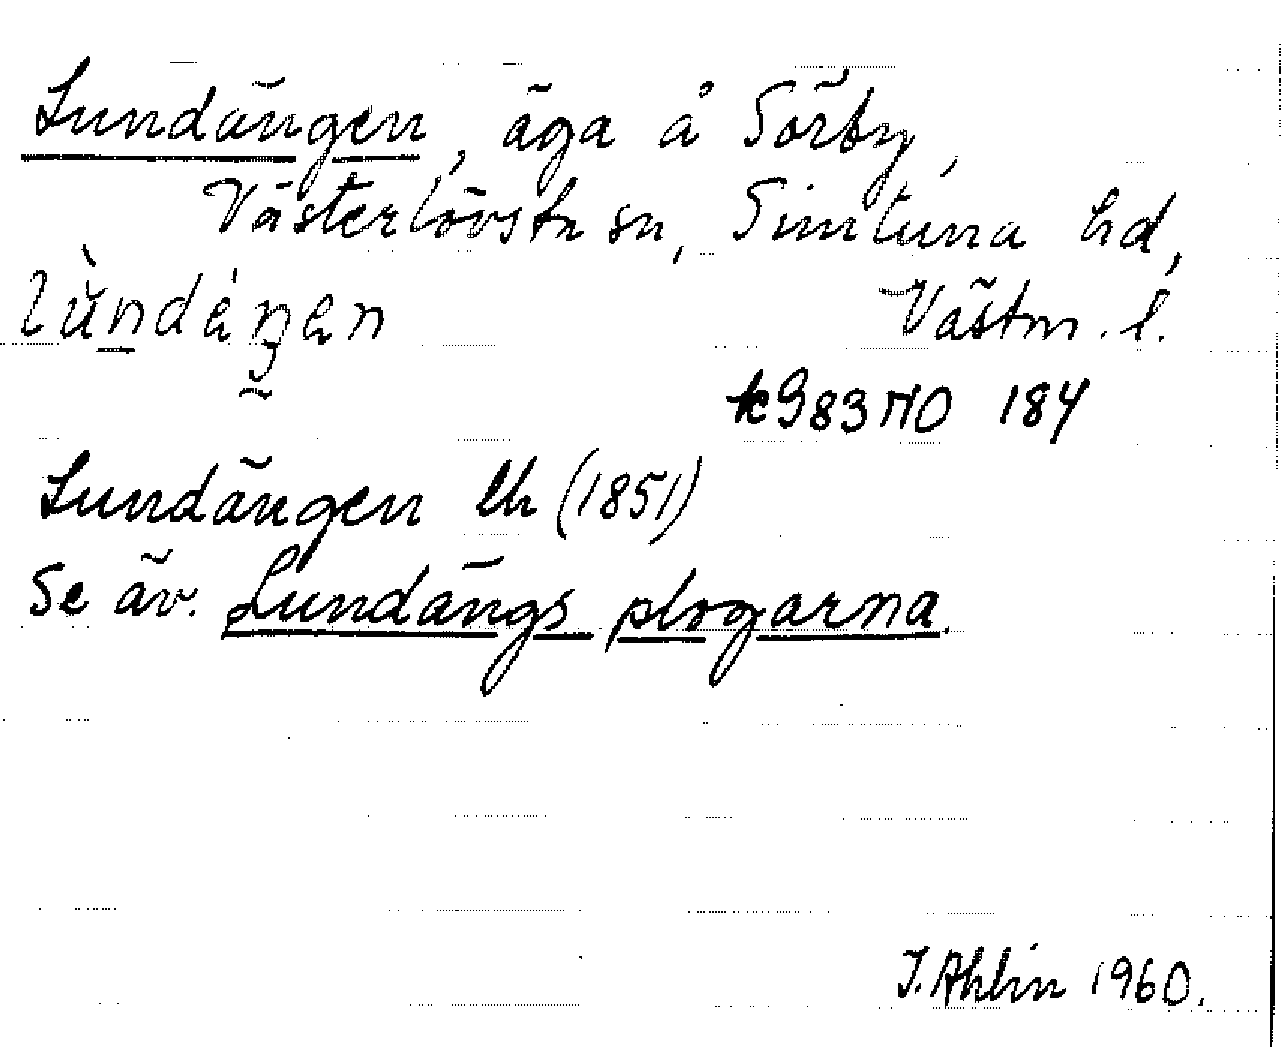 Lundängen, äga å Sörby,
Västerlövsta sn, Simtuna hd,
lùndéŋen Västm. l.
k983 NO 184
Lundängen Ch (1851)
Se äv. Lundängs plogarna.
I. Ahlin 1960.